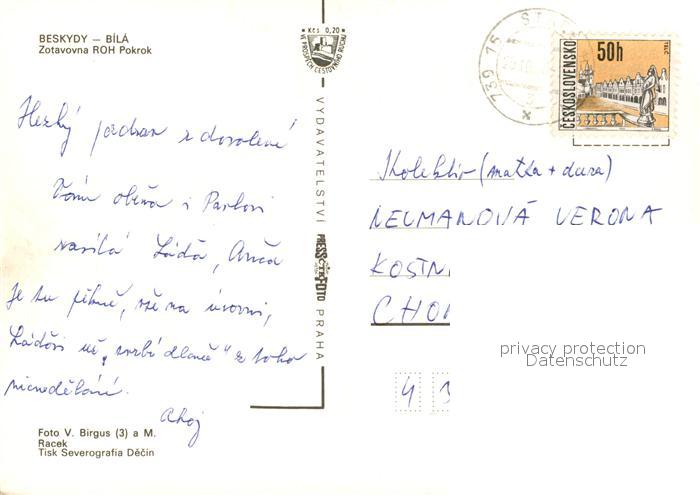 BESKYDY — BÍLÁ
Zotavovna ROH Pokrok
Kčs 0,20
VE PROSPĚCH CESTOVNÍHO RUCHU
739 15
ČESKOSLOVENSKO
50h
TELČ
Hezký pozdrav z dovolené
Vám oběma i Pavlovi
zasílá Láďa, Anča
Je tu pěkně, vše na úrovni,
Láďovi už „svrbí dlaně“ z toho
nicnedělání.
Ahoj
VYDAVATELSTVÍ PRESSFOTO PRAHA
ČTK
Kolektiv (matka + dcera)
NEUMANOVÁ VERONA
KOSTN
CHO
privacy protection
Datenschutz
4 3
Foto V. Birgus (3) a M.
Racek
Tisk Severografia Děčín